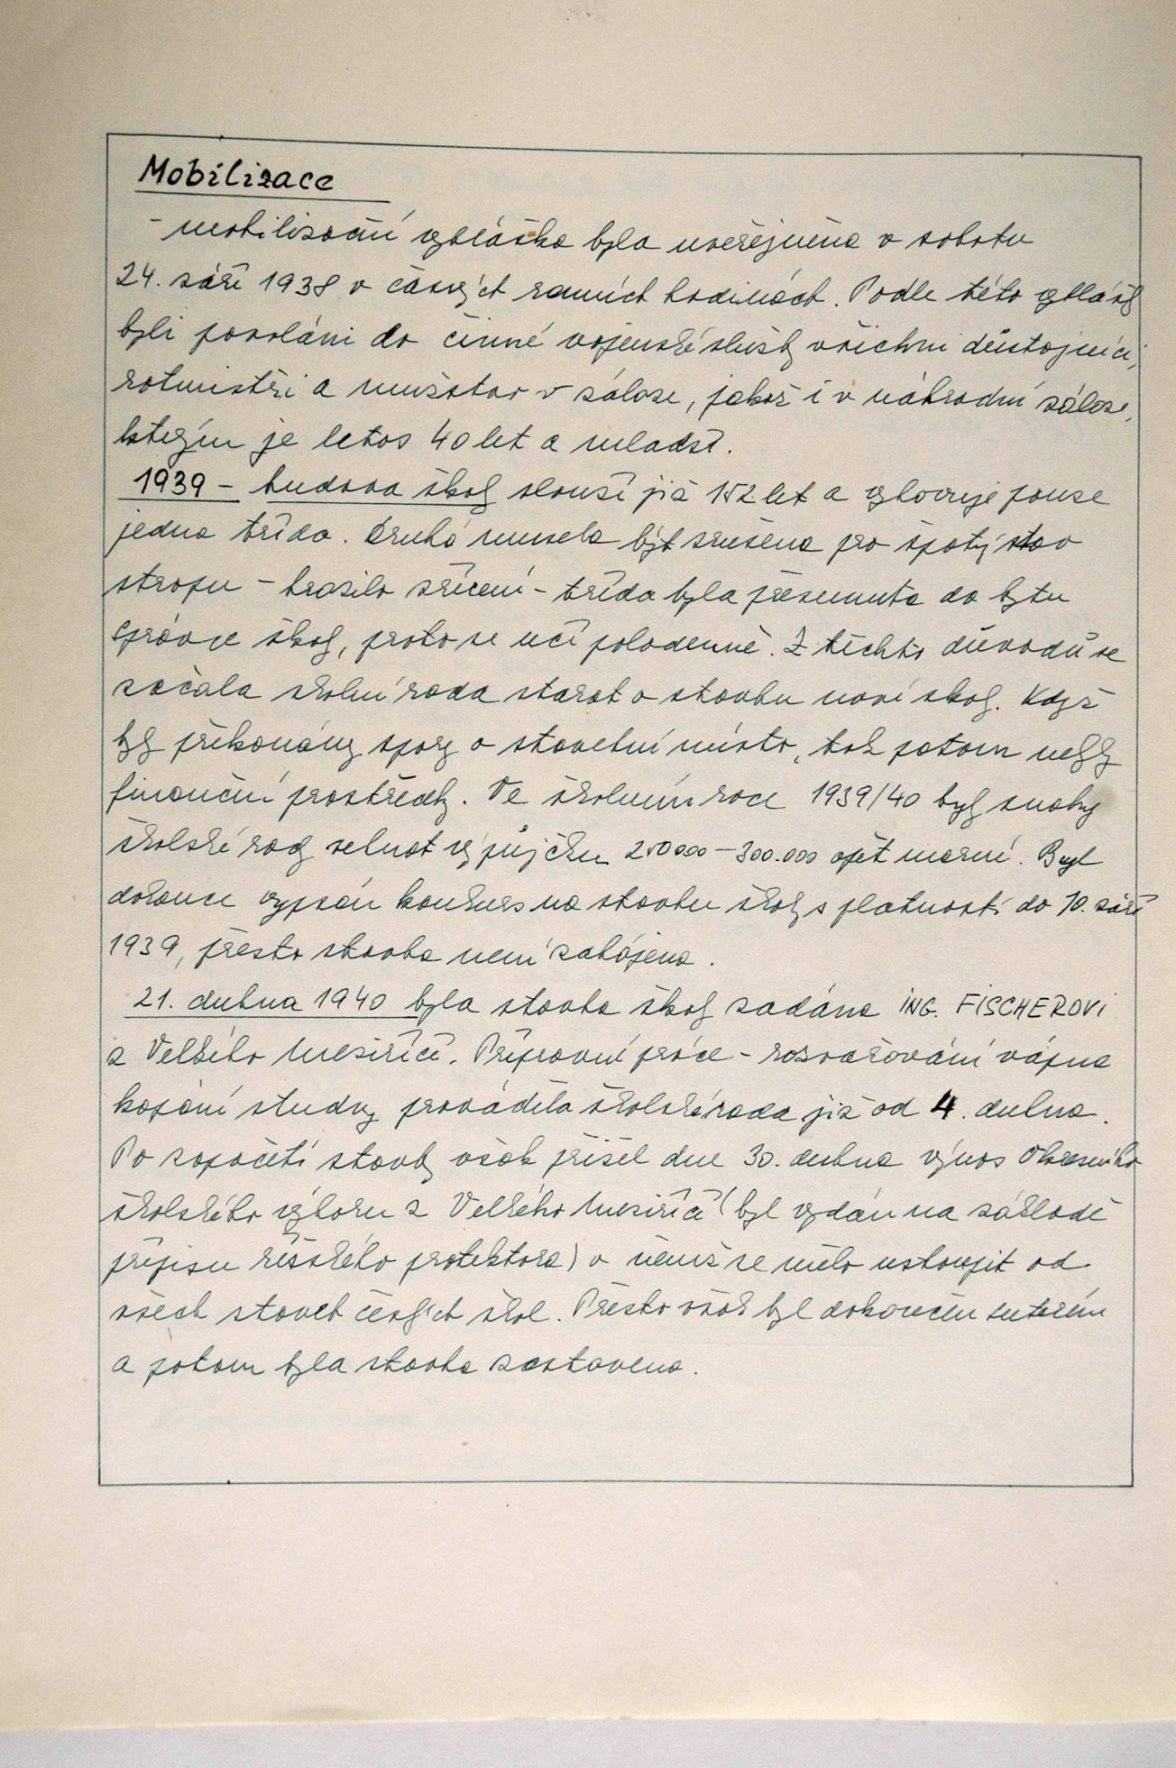 Mobilizace
- mobilizační vyhláška byla uveřejněna v sobotu
24. září 1938 v časných ranních hodinách. Podle této vyhlášky
byli povoláni do činné vojenské služby všichni důstojníci,
rotmistři a mužstvo v záloze, jakož i v náhradní záloze,
kterým je letos 40 let a mladší.
1939 - budova školy slouží již 152 let a vyhovuje pouze
jedna třída. Druhá musela být zrušena pro špatný stav
stropu - hrozilo zřícení - třída byla přesunuta do bytu
správce školy, proto se učí polodenně. Z těchto důvodů se
začala školní rada starat o stavbu nové školy. Když
byly překonány spory o stavební místo, tak potom nebyly
finanční prostředky. Ve školním roce 1939/40 byly snahy
školské rady sehnat výpůjčku 250000 - 300.000 opět marné. Byl
dokonce vypsán konkurs na stavbu školy s platností do 10. září
1939, přesto stavba není zahájena.
21. dubna 1940 byla stavba školy zadána ING. FISCHEROVI
z Velkého Meziříčí. Přípravné práce - rozvažování vápna
kopání studny prováděla školská rada již od 4. dubna.
Po započetí stavby však přišel dne 30. dubna výnos Okresního
školského výboru z Velkého Meziříčí (byl vydán na základě
přípisu říšského protektora) v němž se mělo ustoupit od
všech staveb českých škol. Přesto však byl dokončen suterén
a potom byla stavba zastavena.